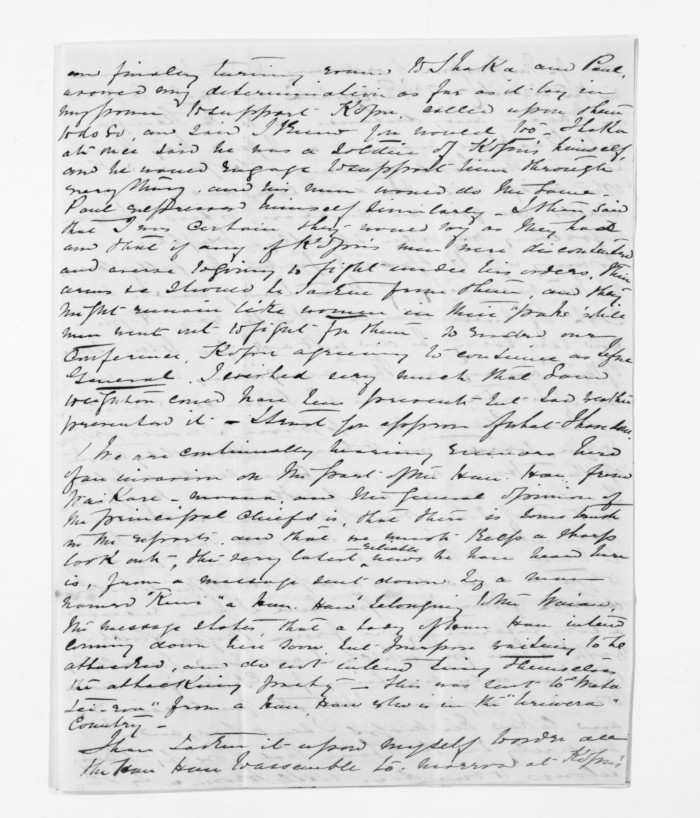 and finally turning round to Ihaka and Paul,
avowed my determination as far as it lay in
my power to support Kopu, called upon them
to do so, and said I knew you would too. Ihaka
at once said he was a soldier of Kopu's himself,
and he would engage to support him through
every thing, and his men would do the same.
Paul expressed himself similarly – I then said
that I was certain they would try as they had
and that if any of Kopu's men were discontented
and averse to going to fight under his orders, their
arms &c should be taken from them, and they
might remain like women in their pahs while
men went out to fight for them. So ended our
Conference, Kopu agreeing to continue as before
General. I wished very much that Saml
Deighton could have been present but bad weather
prevented it – I trust you approve of what I have done.
We are continually hearing rumours here
of an invasion on the part of the Hau Hau from
Waikare-moana, and the general opinion of
the principal chiefs is, that there is some truth
in the reports, and that we must keep a sharp
look out, the very latest reliable news we have had here
is, from a message sent down by a man
named "Rewi" a Hau Hau belonging to the Wairoa,
the message states, that a body of Hau Hau intend
coming down here soon, but propose waiting to be
attacked, and do not intend being themselves
the attacking party – this was sent to
from a Hau Hau who is in the "Uriwera"
Country –
I have taken it upon myself to order all
the Hau Hau to assemble to-morrow at Kopu's